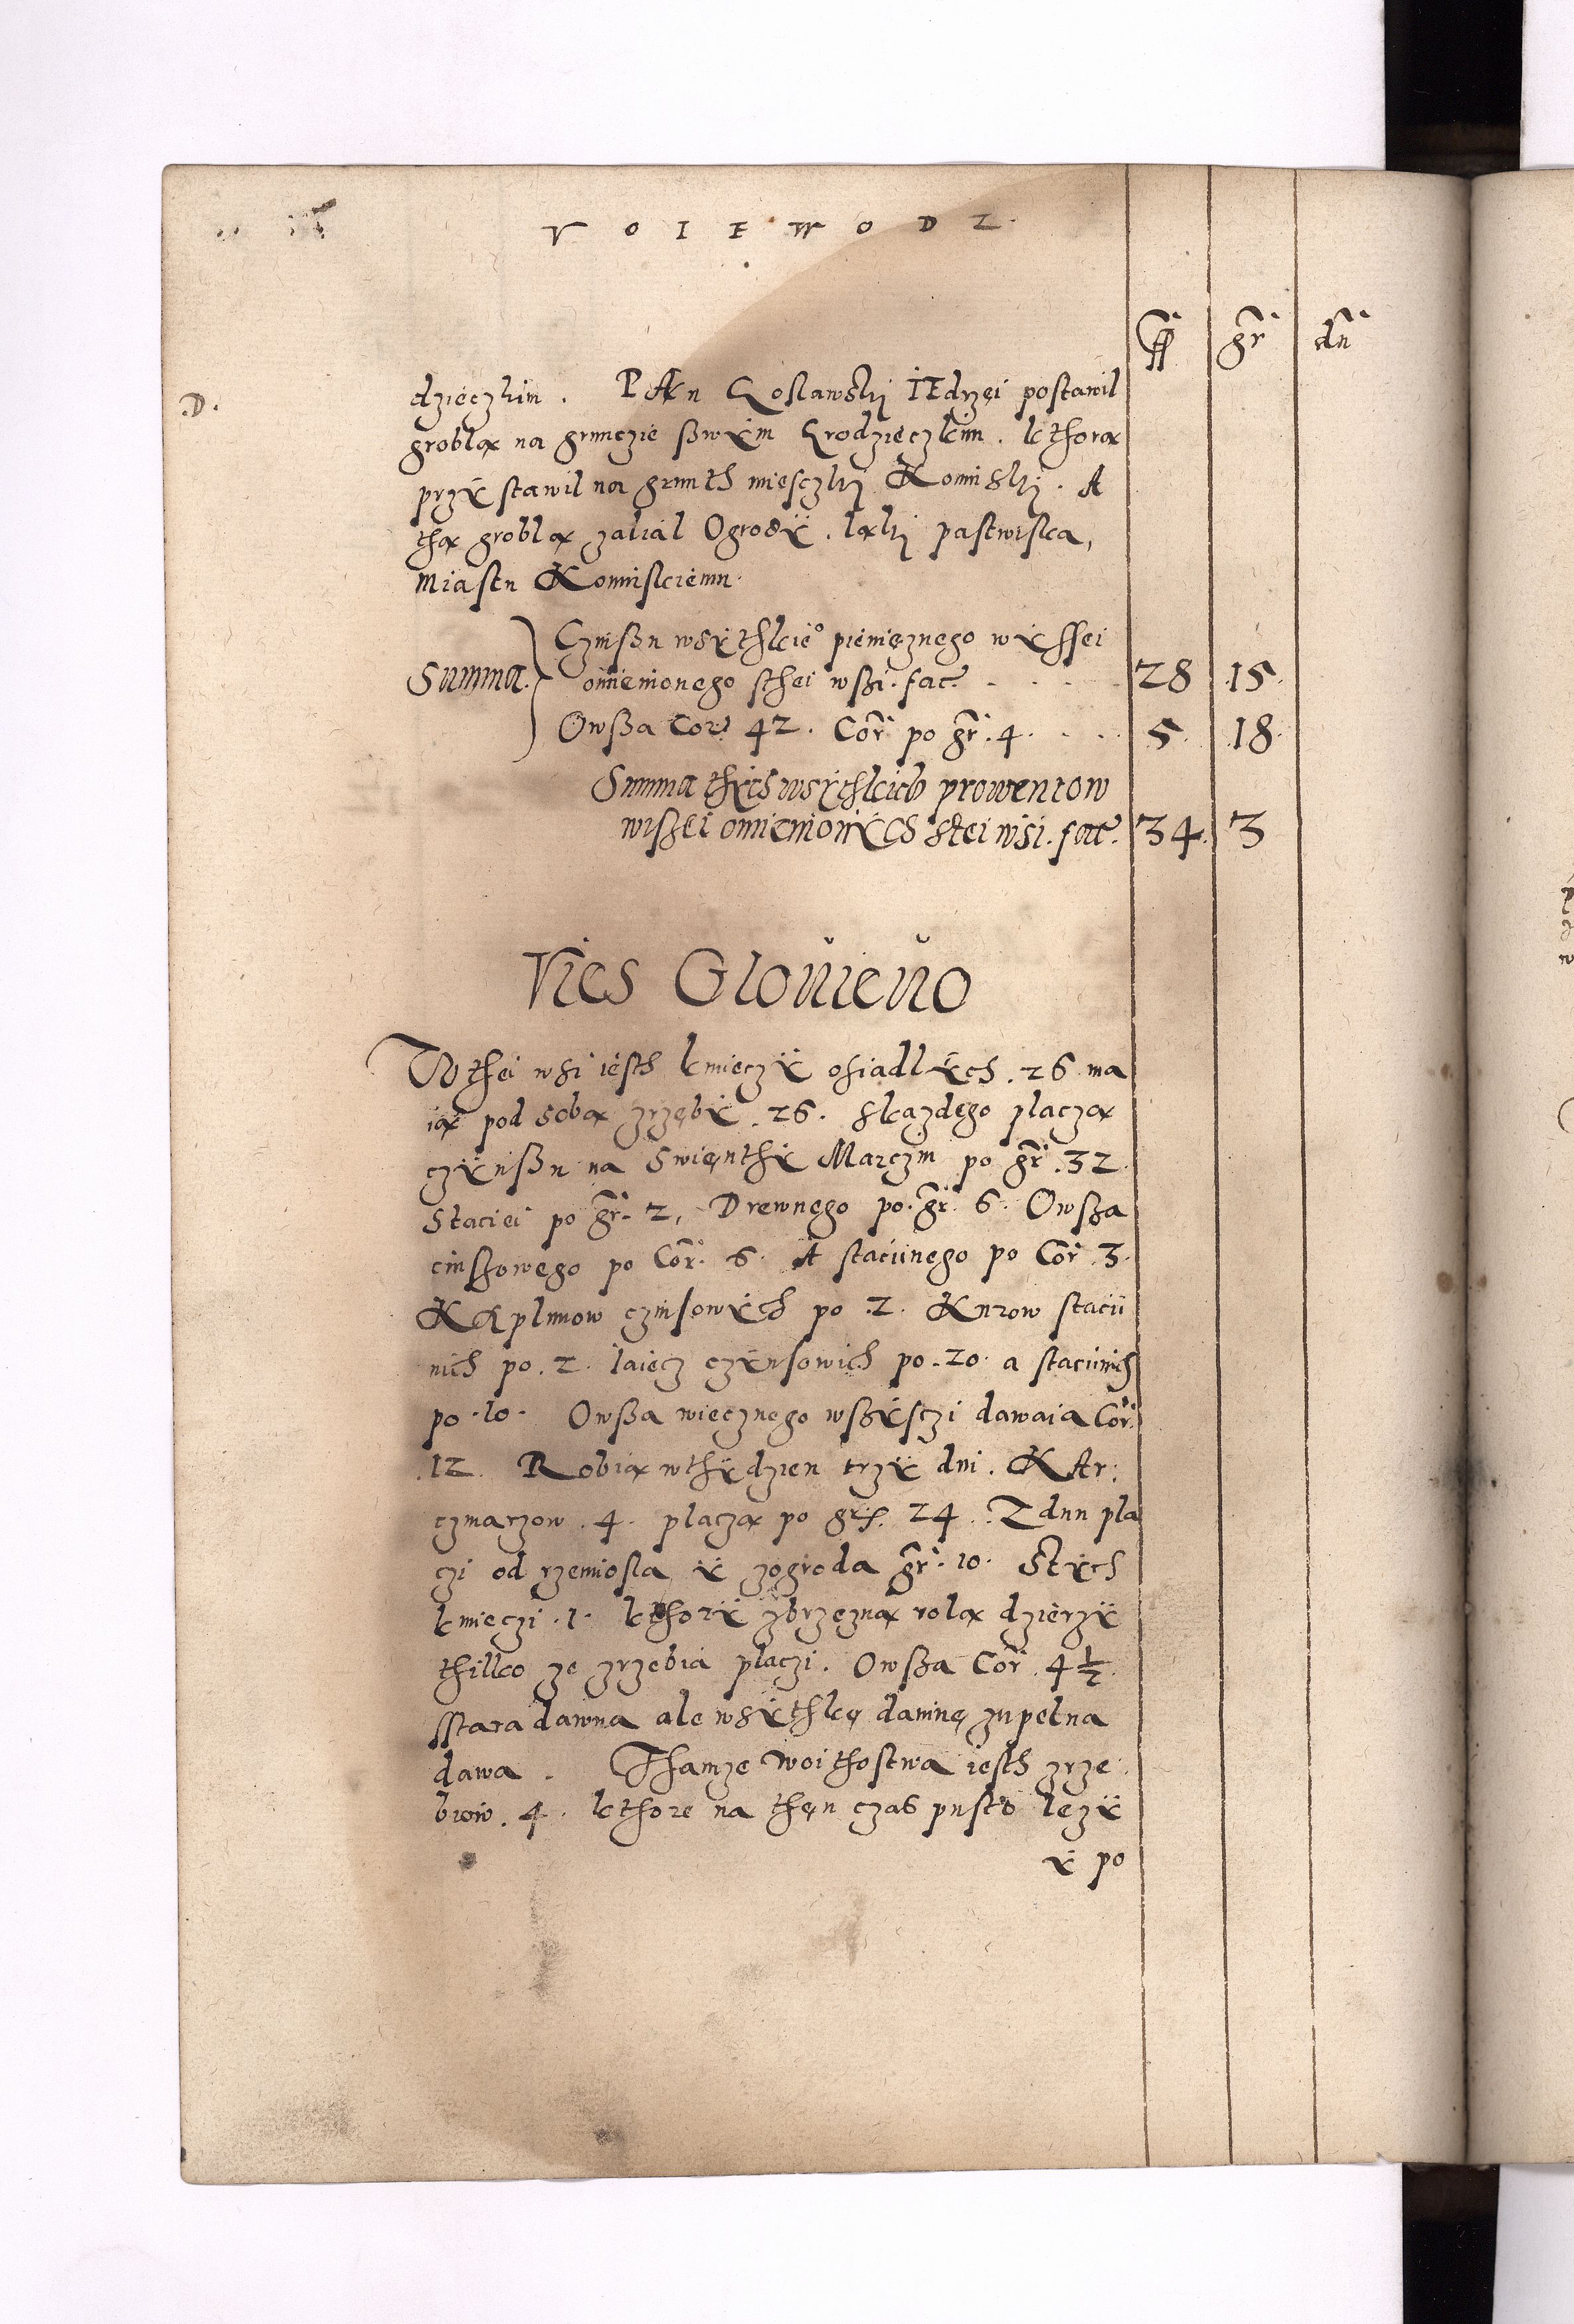 VOIEWODZ.
ff gr dn
.D.
dzieczkim . PAn Goslawski IEdrzei postawil
groblą na grunczie ßwym Grodzieczkim . kthorą
przÿstawil na grunth miesczki Koninski . A
thą groblą zalial Ogrodÿ . Iąki pastwiska,
Miastu Koninskiemu.
Summa. Czinßu wsÿthkieo pienięznego wÿssei
omienionego sthei wßi . fac. . . . 28 .15.
Owßa Cor 42 . Cor po gr . 4 . . . 5. .18.
Summa thÿch wsÿthkich prowentow
wißei omienionÿch stei wsi . fac. 34. 3
Vies Gloẅieno
W thei wsi iesth kmieczÿ osiadlÿch . 26 ma
ią pod sobą zrzębÿ . 26 . Skazdego placzą
czÿnßu na Swięnthÿ Marczin po gr . 32.
Staciei po gr. 2, Drewnego po. gr. 6. Owßa
cinßowego po Cor. 6. A staciinego po Cor 3.
KApłunow czinsowÿch po .2. Kurow stacii
nich po .2. Iaiecz czÿnsowich po .20. a staciinich
po .10. Owßa wiecznego wßÿsczi dawaia Cor.
.12. Robią wthÿdzien trzÿ dni . KAr:
czmarzow . 4. placzą po grs. 24 . Zdun pla
czi od rzemiosla ÿ zogroda gr. 10. Stÿch
kmieczi .1. kthorÿ zbrzezną rolą dzierzÿ
thilko ze zrzebia placzi . Owßa Cor . 4 1/2.
sstara dawna ale wsÿthkę daninę zupelna
dawa . Thamze Woithostwa iesth zrze
biow . 4 . kthore na thęn czas pusto lezÿ
ÿ po